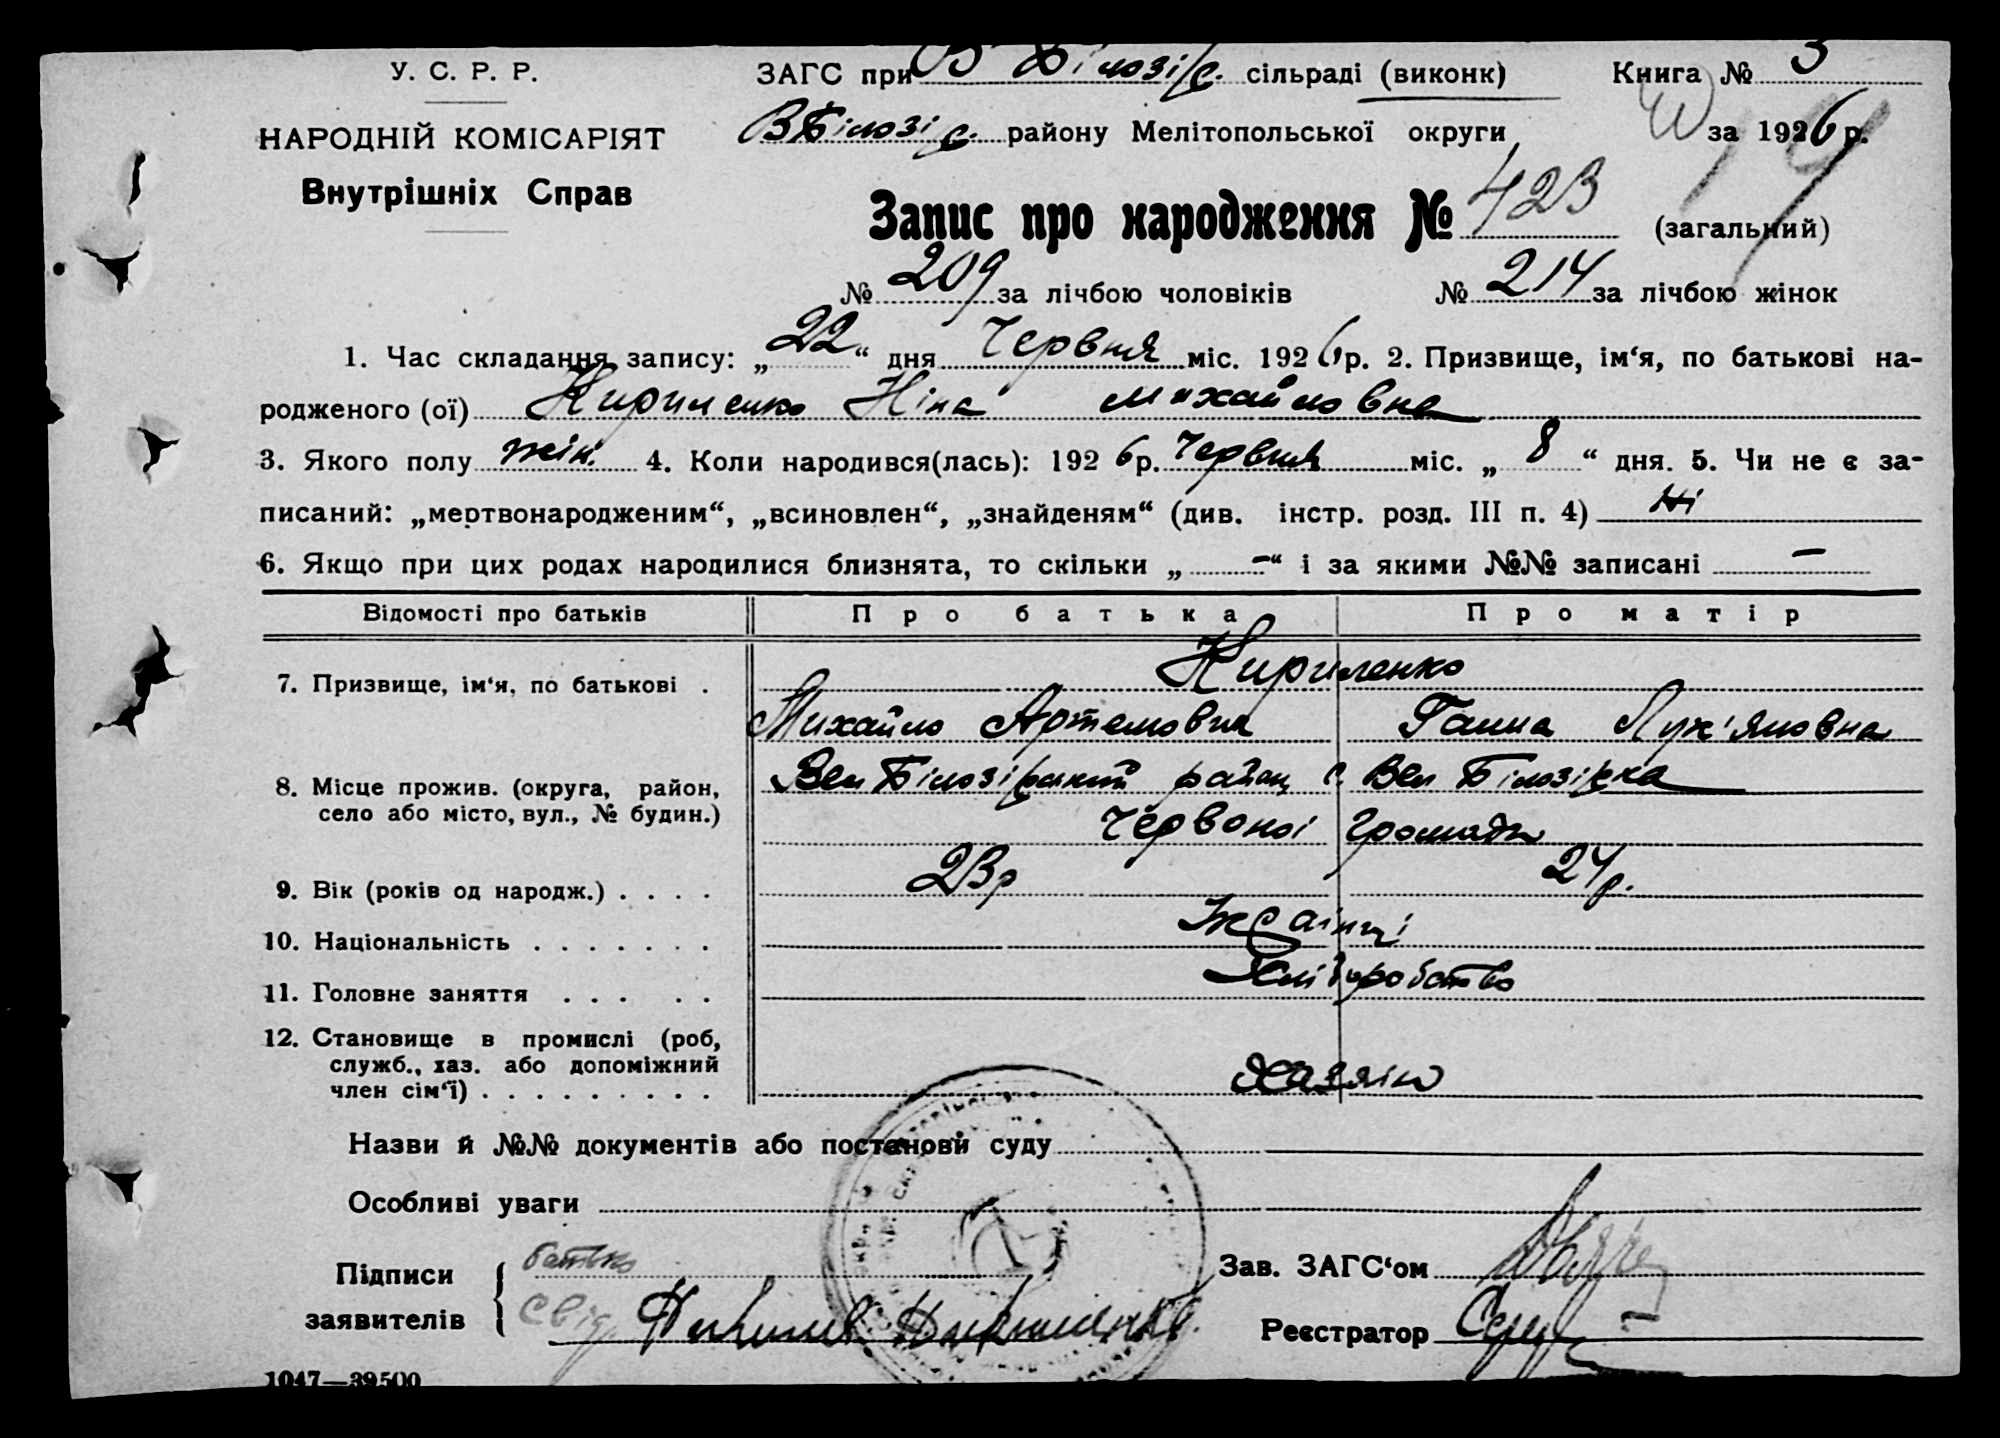 У. С. Р. Р.
НАРОДНІЙ КОМІСАРІЯТ
Внутрішніх Справ
ЗАГС при В Білозір. сільраді (виконк) Книга № 3
В Білозір. району Мелітопольської округи за 1926 р.
Запис про народження № 423 (загальний)
№ 209 за лічбою чоловіків № 214 за лічбою жінок
1. Час складання запису: „22“ дня Червня міс. 1926 р. 2. Призвище, ім‘я, по батькові на-
родженого (ої) Кириленко Ніна Михайловна
3. Якого полу жін. 4. Коли народився(лась): 1926 р. Червня міс. „8“ дня. 5. Чи не є за-
писаний: „мертвонародженим“, „всиновлен“, „знайденям“ (див. інстр. розд. III п. 4) Ні
6. Якщо при цих родах народилися близнята, то скільки „-“ і за якими №№ записані -
Відомості про батьків Про батька Про матір
7. Призвище, ім‘я, по батькові . Кириленко
Михайло Артемович Ганна Лук'яновна
8. Місце прожив. (округа, район, Вел Білозірський район с. Вел Білозірка
село або місто, вул., № будин.) Червоної Громади
9. Вік (років од народж.) . . . . 23р 24р.
10. Національність . . . . . . . Українці
11. Головне заняття . . . . . Хліборобство
12. Становище в промислі (роб,
служб., хаз. або допоміжний
член сім‘ї) . . . . . . . . . Хазяін
Назви й №№ документів або постанови суду
Особливі уваги
Підписи батько Зав. ЗАГС‘ом
заявителів Свід. Реєстратор
1047—39500